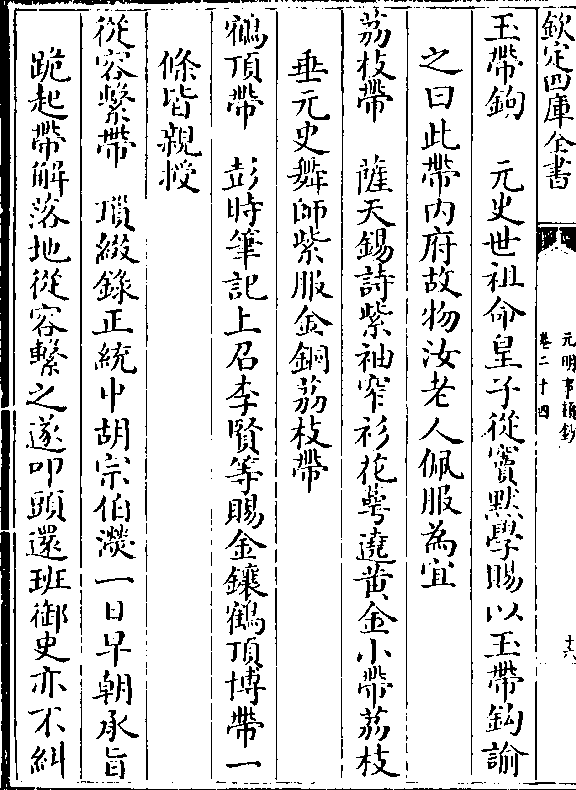 欽定四庫全書
元明事類鈔
卷二十四
十六
玉帶鉤　元史世祖命皇子從竇默學賜以玉帶鉤諭
之曰此帶內府故物汝老人佩服為宜
荔枝帶　薩天錫詩紫袖窄衫花萼遶黄金小帶荔枝
垂元史舞師紫服金銅荔枝帶
鶴頂帶　彭時筆記上召李賢等賜金鑲鶴頂博帶一
條皆親授
從容繫帶　瑣綴錄正統中胡宗伯濙一日早朝承旨
跪起帶解落地從容繫之遂叩頭還班御史亦不糾